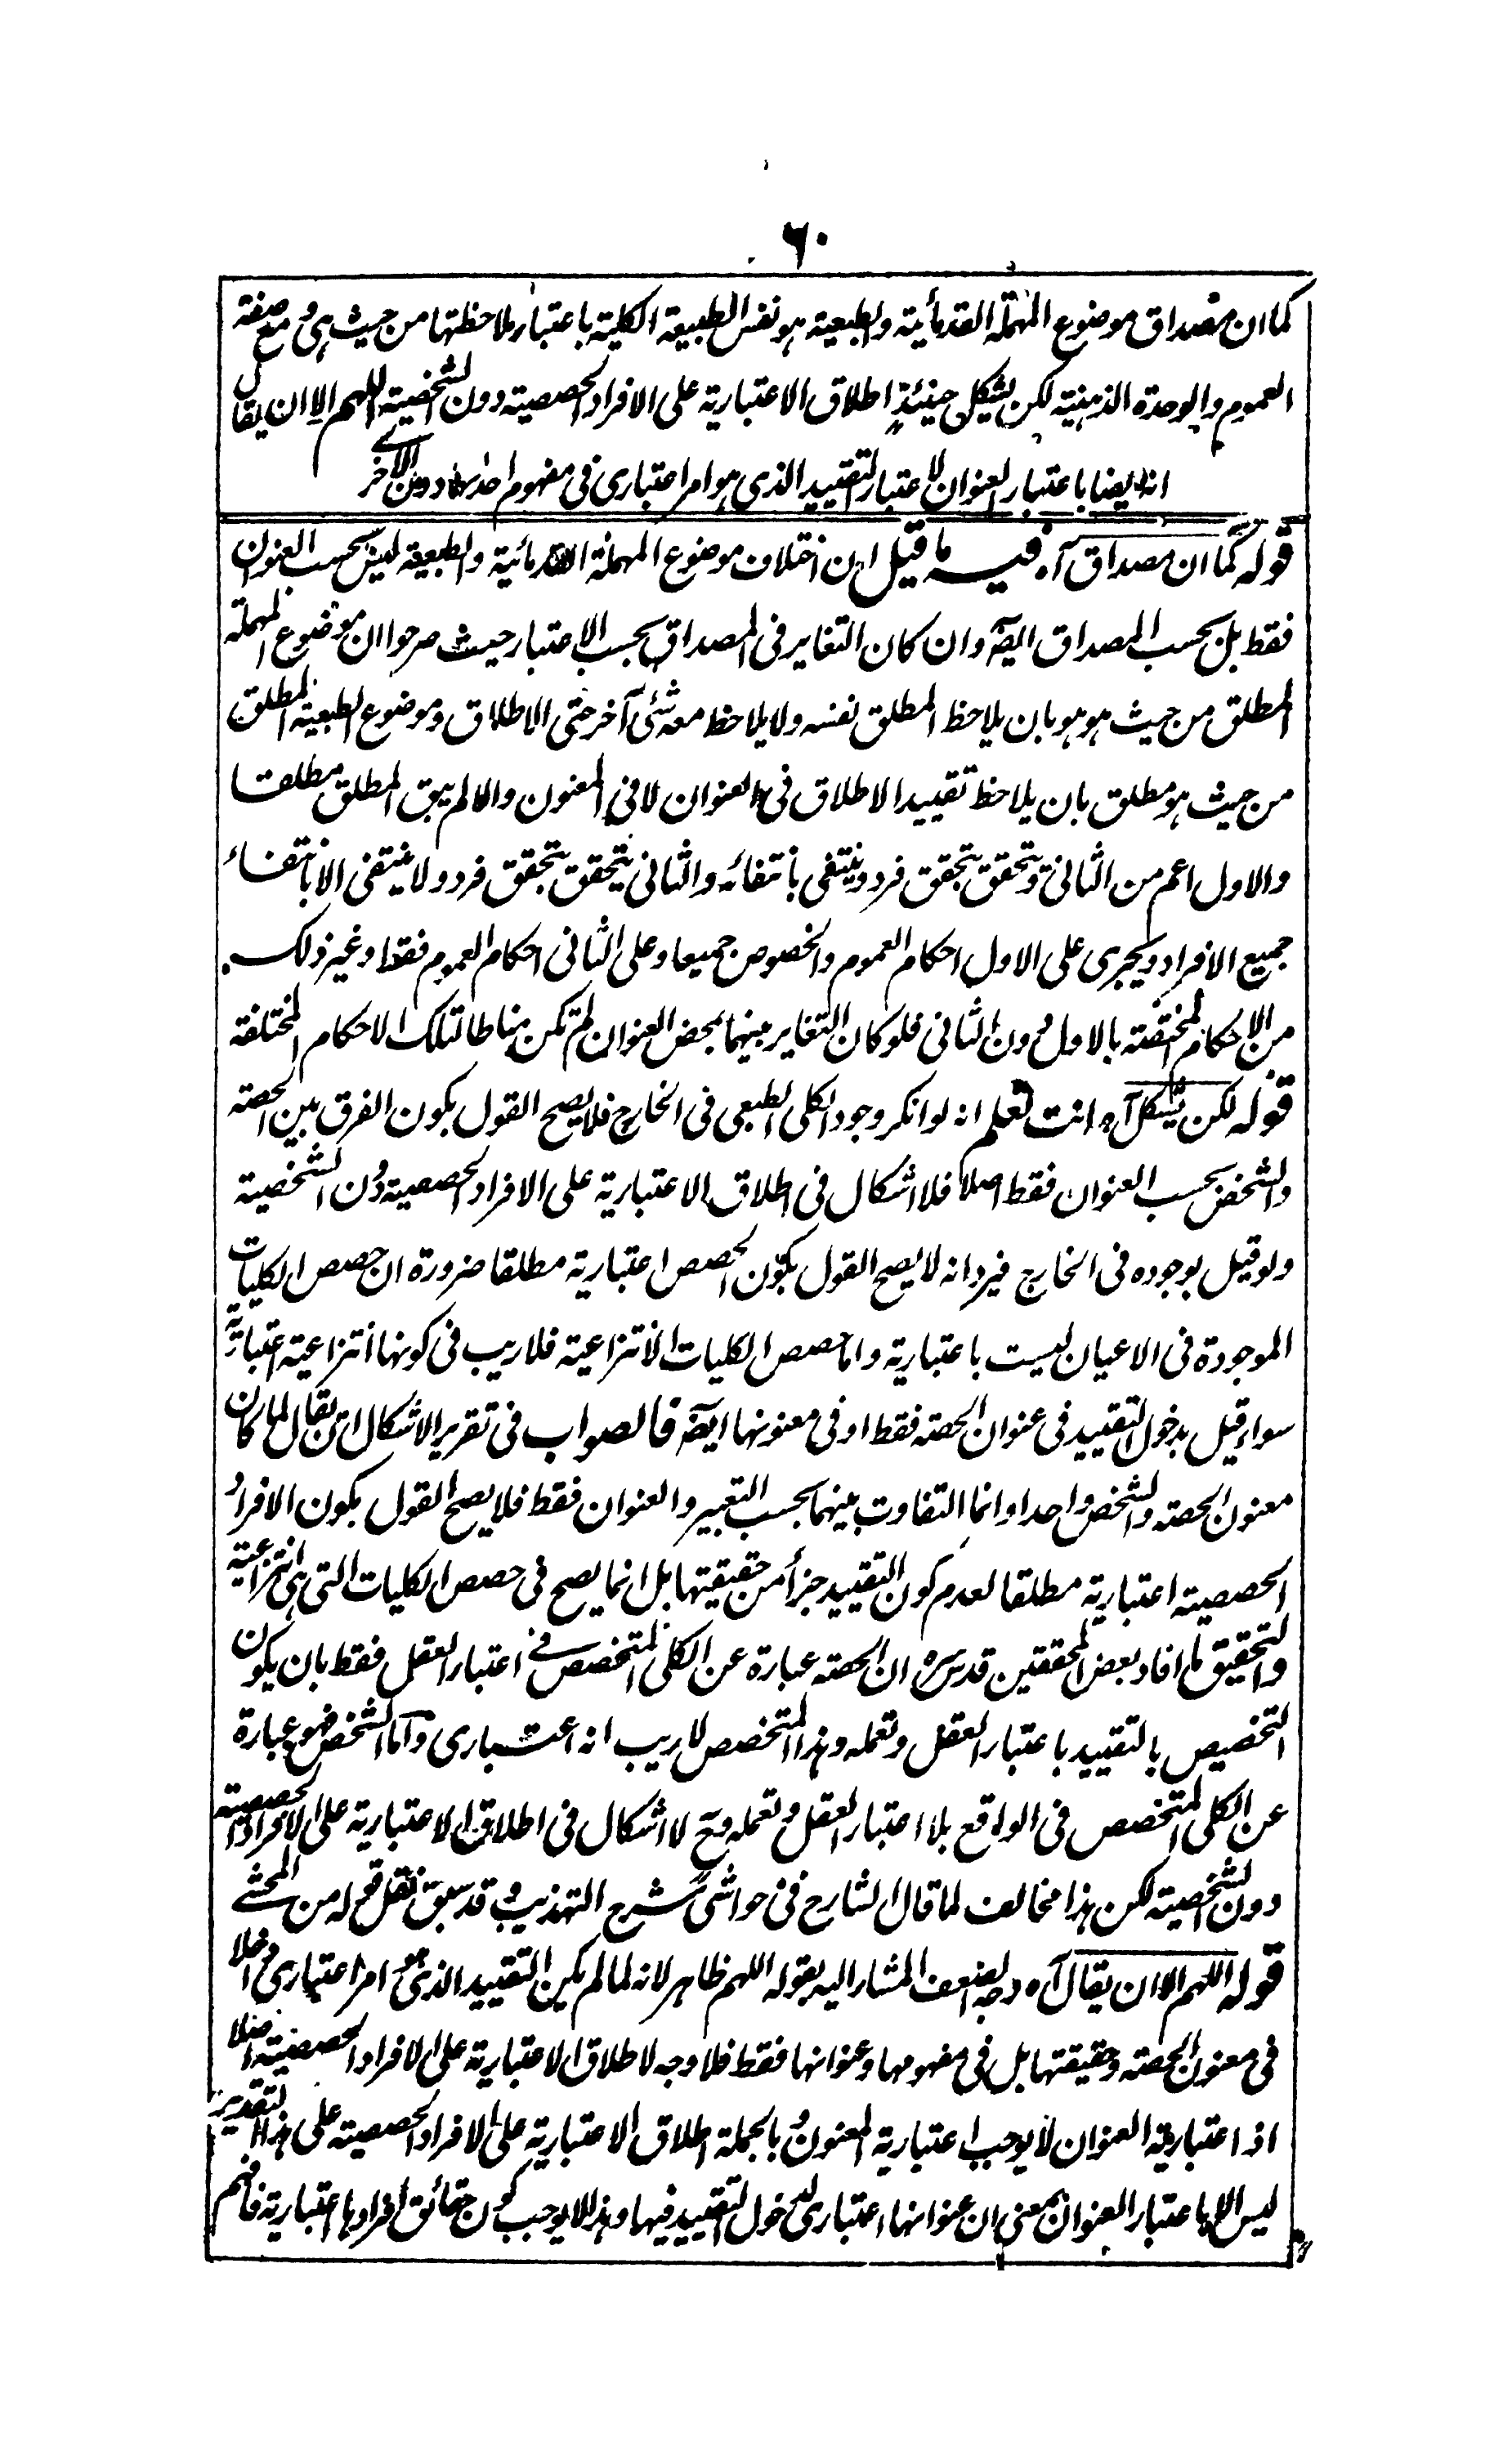 ٦٠
كما ان مصداق موضوع المهملة القدمائية والطبعية هو نفس الطبيعة الكلية باعتبار ملاحظتها من حيث هي ومع صفة
العموم والوحدة الذهنية لكن يشكل حينئذ اطلاق الاعتبارية على الافراد الحصصية دون الشخصية اللهم الا ان يقال
انه ايضا باعتبار العنوان لاعتبار التقييد الذي هو امر اعتباري في مفهوم احدهما دون الآخر
قوله كما ان مصداق آه فيه ما قيل ان اختلاف موضوع المهملة القدمائية والطبعية ليس بحسب العنوان
فقط بل بحسب المصداق ايضه وان كان التغاير في المصداق بحسب الاعتبار حيث صرحوا ان موضوع المهملة
المطلق من حيث هو هو بان يلاحظ المطلق نفسه ولا يلاحظ معه شئ آخر حتى الاطلاق وموضوع الطبعية المطلق
من حيث هو مطلق بان يلاحظ تقييد الاطلاق في العنوان لا في المعنون والا لم يبق المطلق مطلقا
والاول اعم من الثاني ويتحقق بتحقق فرد وينتفي بانتفائه والثاني يتحقق بتحقق فرد ولا ينتفي الا بانتفاء
جميع الافراد ويجري على الاول احكام العموم والخصوص جميعا وعلى الثاني احكام العموم فقط وغير ذلك
من الاحكام المختصة بالاول دون الثاني فلو كان التغاير بينهما بمحض العنوان لم تكن مناطا لتلك الاحكام المختلفة
قوله لكن يشكل آه انت تعلم انه لو انكر وجود الكلي الطبعي في الخارج فلا يصح القول بكون الفرق بين الحصة
والشخص بحسب العنوان فقط اصلا فلا اشكال في اطلاق الاعتبارية على الافراد الحصصية دون الشخصية
ولو قيل بوجوده في الخارج فيرد انه لا يصح القول بكون الحصص اعتبارية مطلقا ضرورة ان حصص الكليات
الموجودة في الاعيان ليست باعتبارية واما حصص الكليات الانتزاعية فلا ريب في كونها انتزاعية اعتبارية
سواء قيل بدخول التقييد في عنوان الحصة فقط او في معنونها ايضه فالصواب في تقرير الاشكال ان يقال لما كان
معنون الحصة والشخص واحدا وانما التفاوت بينهما بحسب التعبير والعنوان فقط فلا يصح القول بكون الافراد
الحصصية اعتبارية مطلقا لعدم كون التقييد جزأ من حقيقتها بل انما يصح في حصص الكليات التي هي انتزاعية
والتحقيق ما افاد بعض المحققين قدس سره ان الحصة عبارة عن الكلي المتخصص في اعتبار العقل فقط بان يكون
التخصيص بالتقييد باعتبار العقل وتعمله وهذا المتخصص لا ريب انه اعتباري واما الشخص فهو عبارة
عن الكلي المتخصص في الواقع بلا اعتبار العقل وتعمله وح لا اشكال في اطلاق الاعتبارية على الافراد الحصصية
دون الشخصية لكن هذا مخالف لما قال الشارح في حواشي شرح التهذيب وقد سبق نقل قوله من المحشي
قوله اللهم الا ان يقال آه وجه الضعف المشار اليه بقوله اللهم ظاهر لانه لما لم يكن التقييد الذي هو امر اعتباري داخلا
في معنون الحصة وحقيقتها بل في مفهومها وعنوانها فقط فلا وجه لاطلاق الاعتبارية على الافراد الحصصية اصلا
اذ اعتبارية العنوان لا يوجب اعتبارية المعنون وبالجملة اطلاق الاعتبارية على الافراد الحصصية على هذا التقدير
ليس الا باعتبار العنوان بمعنى ان عنوانها اعتباري لدخول التقييد فيها وهذا لا يوجب كون حقائق افرادها اعتبارية فافهم